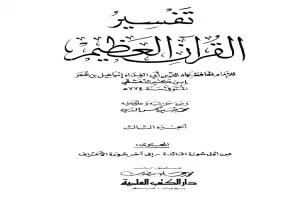 تفسير
القرآن العظيم
للإمام الحافظ عماد الدين أبي الفداء إسماعيل بن عمر
ابن كثير الدمشقي
المتوفى سنة ٧٧٤ هـ
وضع حواشيه وعلق عليه
محمد حسين شمس الدين
الجزء الثالث
المحتوى:
من أول سورة المائدة - إلى آخر سورة الأعراف
دار الكتب العلمية